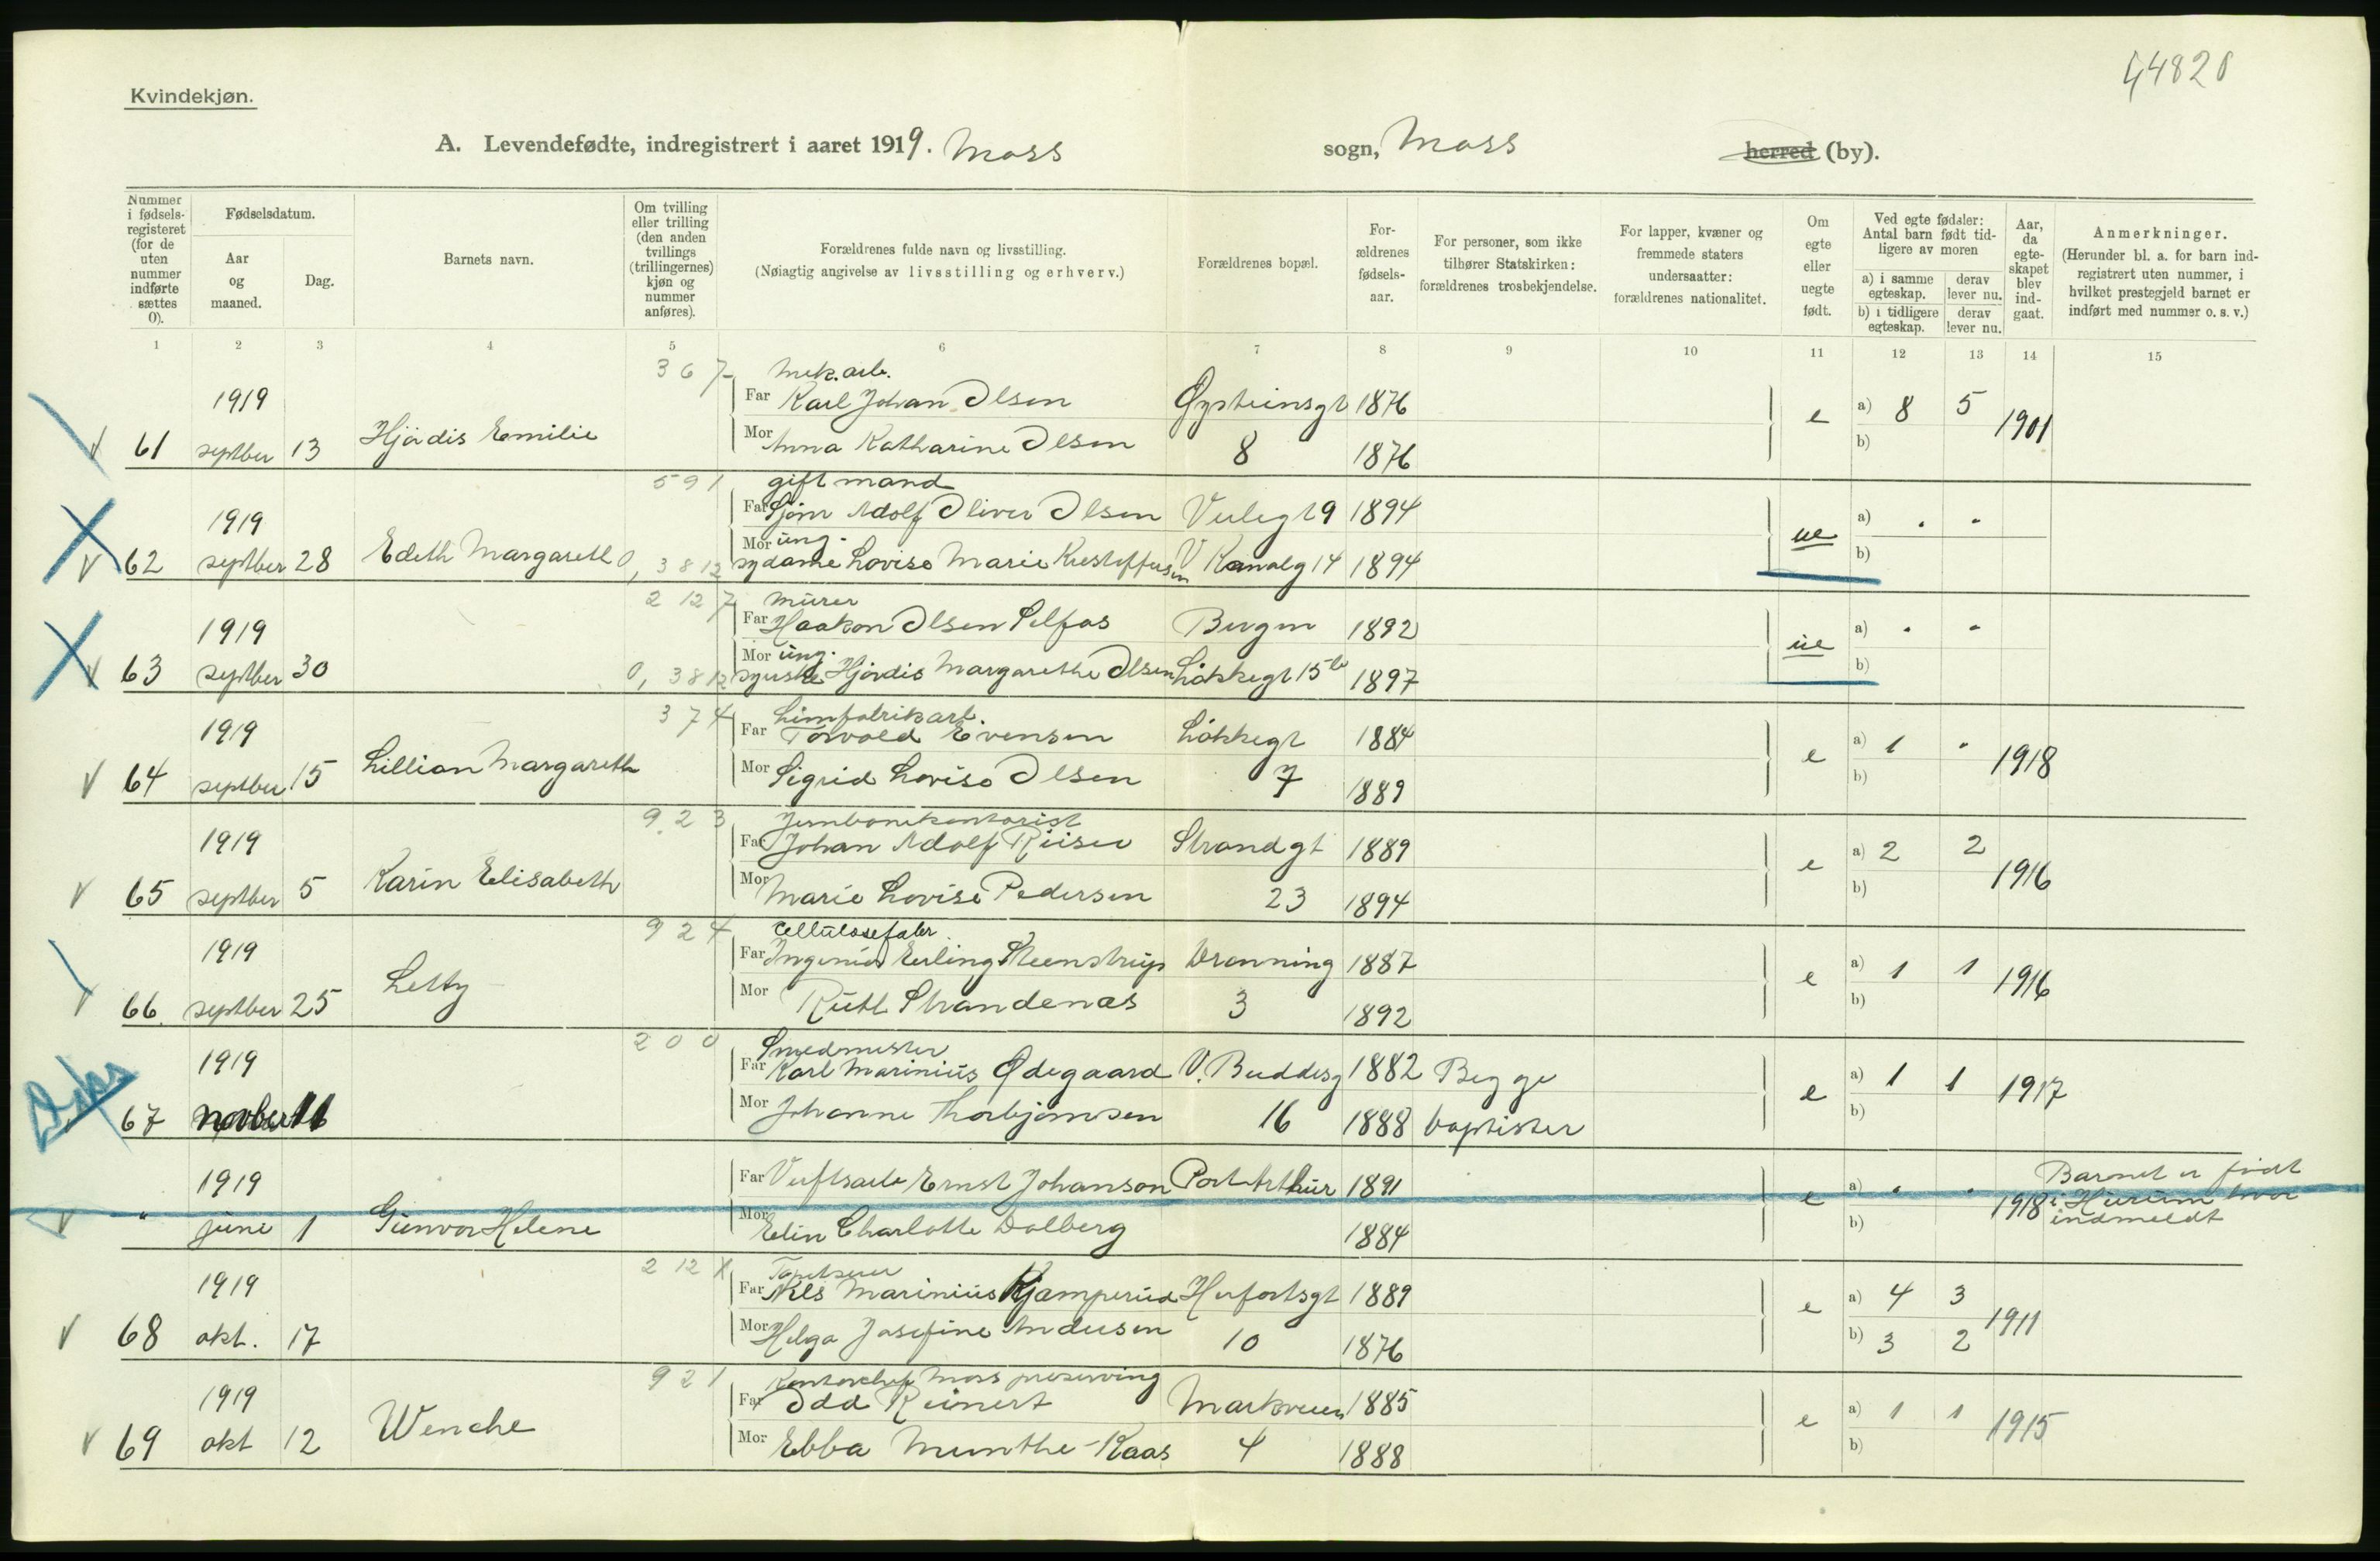 Kvindekjøn.
A. Levendefødte, indregistrert i aaret 1919. Moss sogn, Moss herred (by).
Nummer i fødsels-registeret (for de uten nummer indførte sættes 0).
Fødselsdatum.
Aar og maaned.
Dag.
Barnets navn.
Om tvilling eller trilling (den anden tvillings (trillingernes) kjøn og nummer anføres).
Forældrenes fulde navn og livsstilling.
(Nøiagtig angivelse av livsstilling og erhverv.)
Forældrenes bopæl.
For-ældrenes fødsels-aar.
For personer, som ikke tilhører Statskirken: forældrenes trosbekjendelse.
For lapper, kvæner og fremmede staters undersaatter: forældrenes nationalitet.
Om egte eller uegte født.
Ved egte fødsler: Antal barn født tid-ligere av moren
a) i samme egteskap. derav lever nu.
b) i tidligere egteskap. derav lever nu.
Aar, da egte-skapet blev ind-gaat.
Anmerkninger.
(Herunder bl. a. for barn ind-registrert uten nummer, i hvilket prestegjeld barnet er indført med nummer o. s. v.)
1 2 3 4 5 6 7 8 9 10 11 12 13 14 15
367 Mek. arb.
1919 Far Karl Johan Olsen Øysteinsgt 1876 e a) 8 5 1901
61 septber 13 Hjördis Emilie Mor Anna Katharine Olsen 8 1876 b)
591 gift mand
1919 Far Sjöm Adolf Oliver Olsen Vulegt 9 1894 ue a) " "
Mor ung.
62 septber 28 Edeth Margareth 0, 3812 sydame Lovise Marie Kristoffersen V Kanalg 14 1894 b)
2127 Murer
1919 Far Haakon Olsen Selfos Bergen 1892 ue a) " "
Mor ung.
63 septber 30 0, 3812 syerske Hjördis Margarethe Olsen Lökkegt 15 b 1897 b)
374 Limfabrikarb.
1919 Far Torvald Evensen Lökkegt 1884 e a) 1 " 1918
64 septber 15 Lillian Margareth Mor Sigrid Lovise Olsen 7 1889 b)
923 Jernbanekontorist
1919 Far Johan Adolf Riiser Strandgt 1889 e a) 2 2 1916
65 septber 5 Karin Elisabeth Mor Marie Lovise Pedersen 23 1894 b)
924 Cellulosefabr.
1919 Far Ingeniør Erling Steenstrup Dronning 1887 e a) 1 1 1916
66. septber 25 Letty Mor Ruth Strandenæs 3 1892 b)
200 Smedmester
1919 Far Karl Marinius Ødegaard V. Buddesg 1882 Begge e a) 1 1 1917
67 novber 11 Mor Johanne Thorbjörnsen 16 1888 baptister b)
1919 Far Verftsarb Ernst Johanson Port Arthur 1891 e a) " " 1918 Barnet er født
i Hurum hvor
indmeldt
" june 1 Gunvor Helene Mor Elin Charlotte Dalberg 1884 b)
212 Tapetserer
1919 Far Nils Marinius Kjamperud Herfortsgt 1889 e a) 4 3 1911
68 okt. 17 Mor Helga Josefine Andersen 10 1876 b) 3 2
921 Kontorchef Moss preserving
1919 Far Odd Reinert Markveien 1885 e a) 1 1 1915
69 okt 12 Wenche Mor Ebba Munthe-Kaas 4 1888 b)